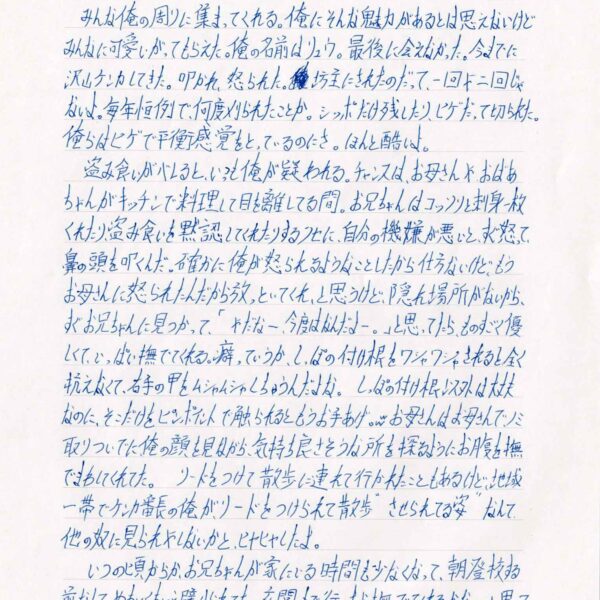 みんな俺の周りに集まってくれる。俺にそんな魅力があるとは思えないけど
みんなに可愛いがってもらえた。俺の名前はリュウ。最後に会えなかった。今までに
沢山ケンカしてきた。叩かれ、怒られた。坊主にされたのだって、一回や二回じゃ
ないよ。毎年恒例で、何度刈られたことか。シッポだけ残したり、ヒゲだって切られた。
俺らはヒゲで平衡感覚をとっているのにさ。ほんと酷いよ。
盗み食いがバレると、いつも俺が疑われる。チャンスは、お母さんや、おばあ
ちゃんがキッチンで料理して目を離してる間。お兄ちゃんはコッソリと刺身一枚
くれたり、盗み食いを黙認してくれたりするクセに、自分の機嫌が悪いと、すぐ怒って、
鼻の頭を叩くんだ。確かに俺が怒られるようなことしたから仕方ないけど、もう
お母さんに怒られたんだから放っといてくれ、と思うけど、隠れ場所がないから、
すぐお兄ちゃんに見つかって、「やだなー、今度はなんだよー。」と思ってたら、ものすごく優
しくて、いっぱい撫でてくれる。癖っていうか、しっぽの付け根をワシャワシャされると全く
抗えなくて、右手の甲をムシャムシャしちゃうんだよね。しっぽの付け根以外は大丈夫
なのに、そこだけをピンポイントで触られるともうお手あげ。お母さんはお母さんで、ノミ
取りついでに俺の顔を見ながら、気持ち良さそうな所を探るようにお腹を撫
でまわしてくれてた。リードをつけて散歩に連れて行かれたこともあるけど、地域
一帯でケンカ番長の俺が、リードをつけられて散歩"させられてる姿"なんて、
他の奴に見られやしないかと、ヒヤヒヤしたよ。
いつの頃からか、お兄ちゃんが家にいる時間も少なくなって、朝登校する